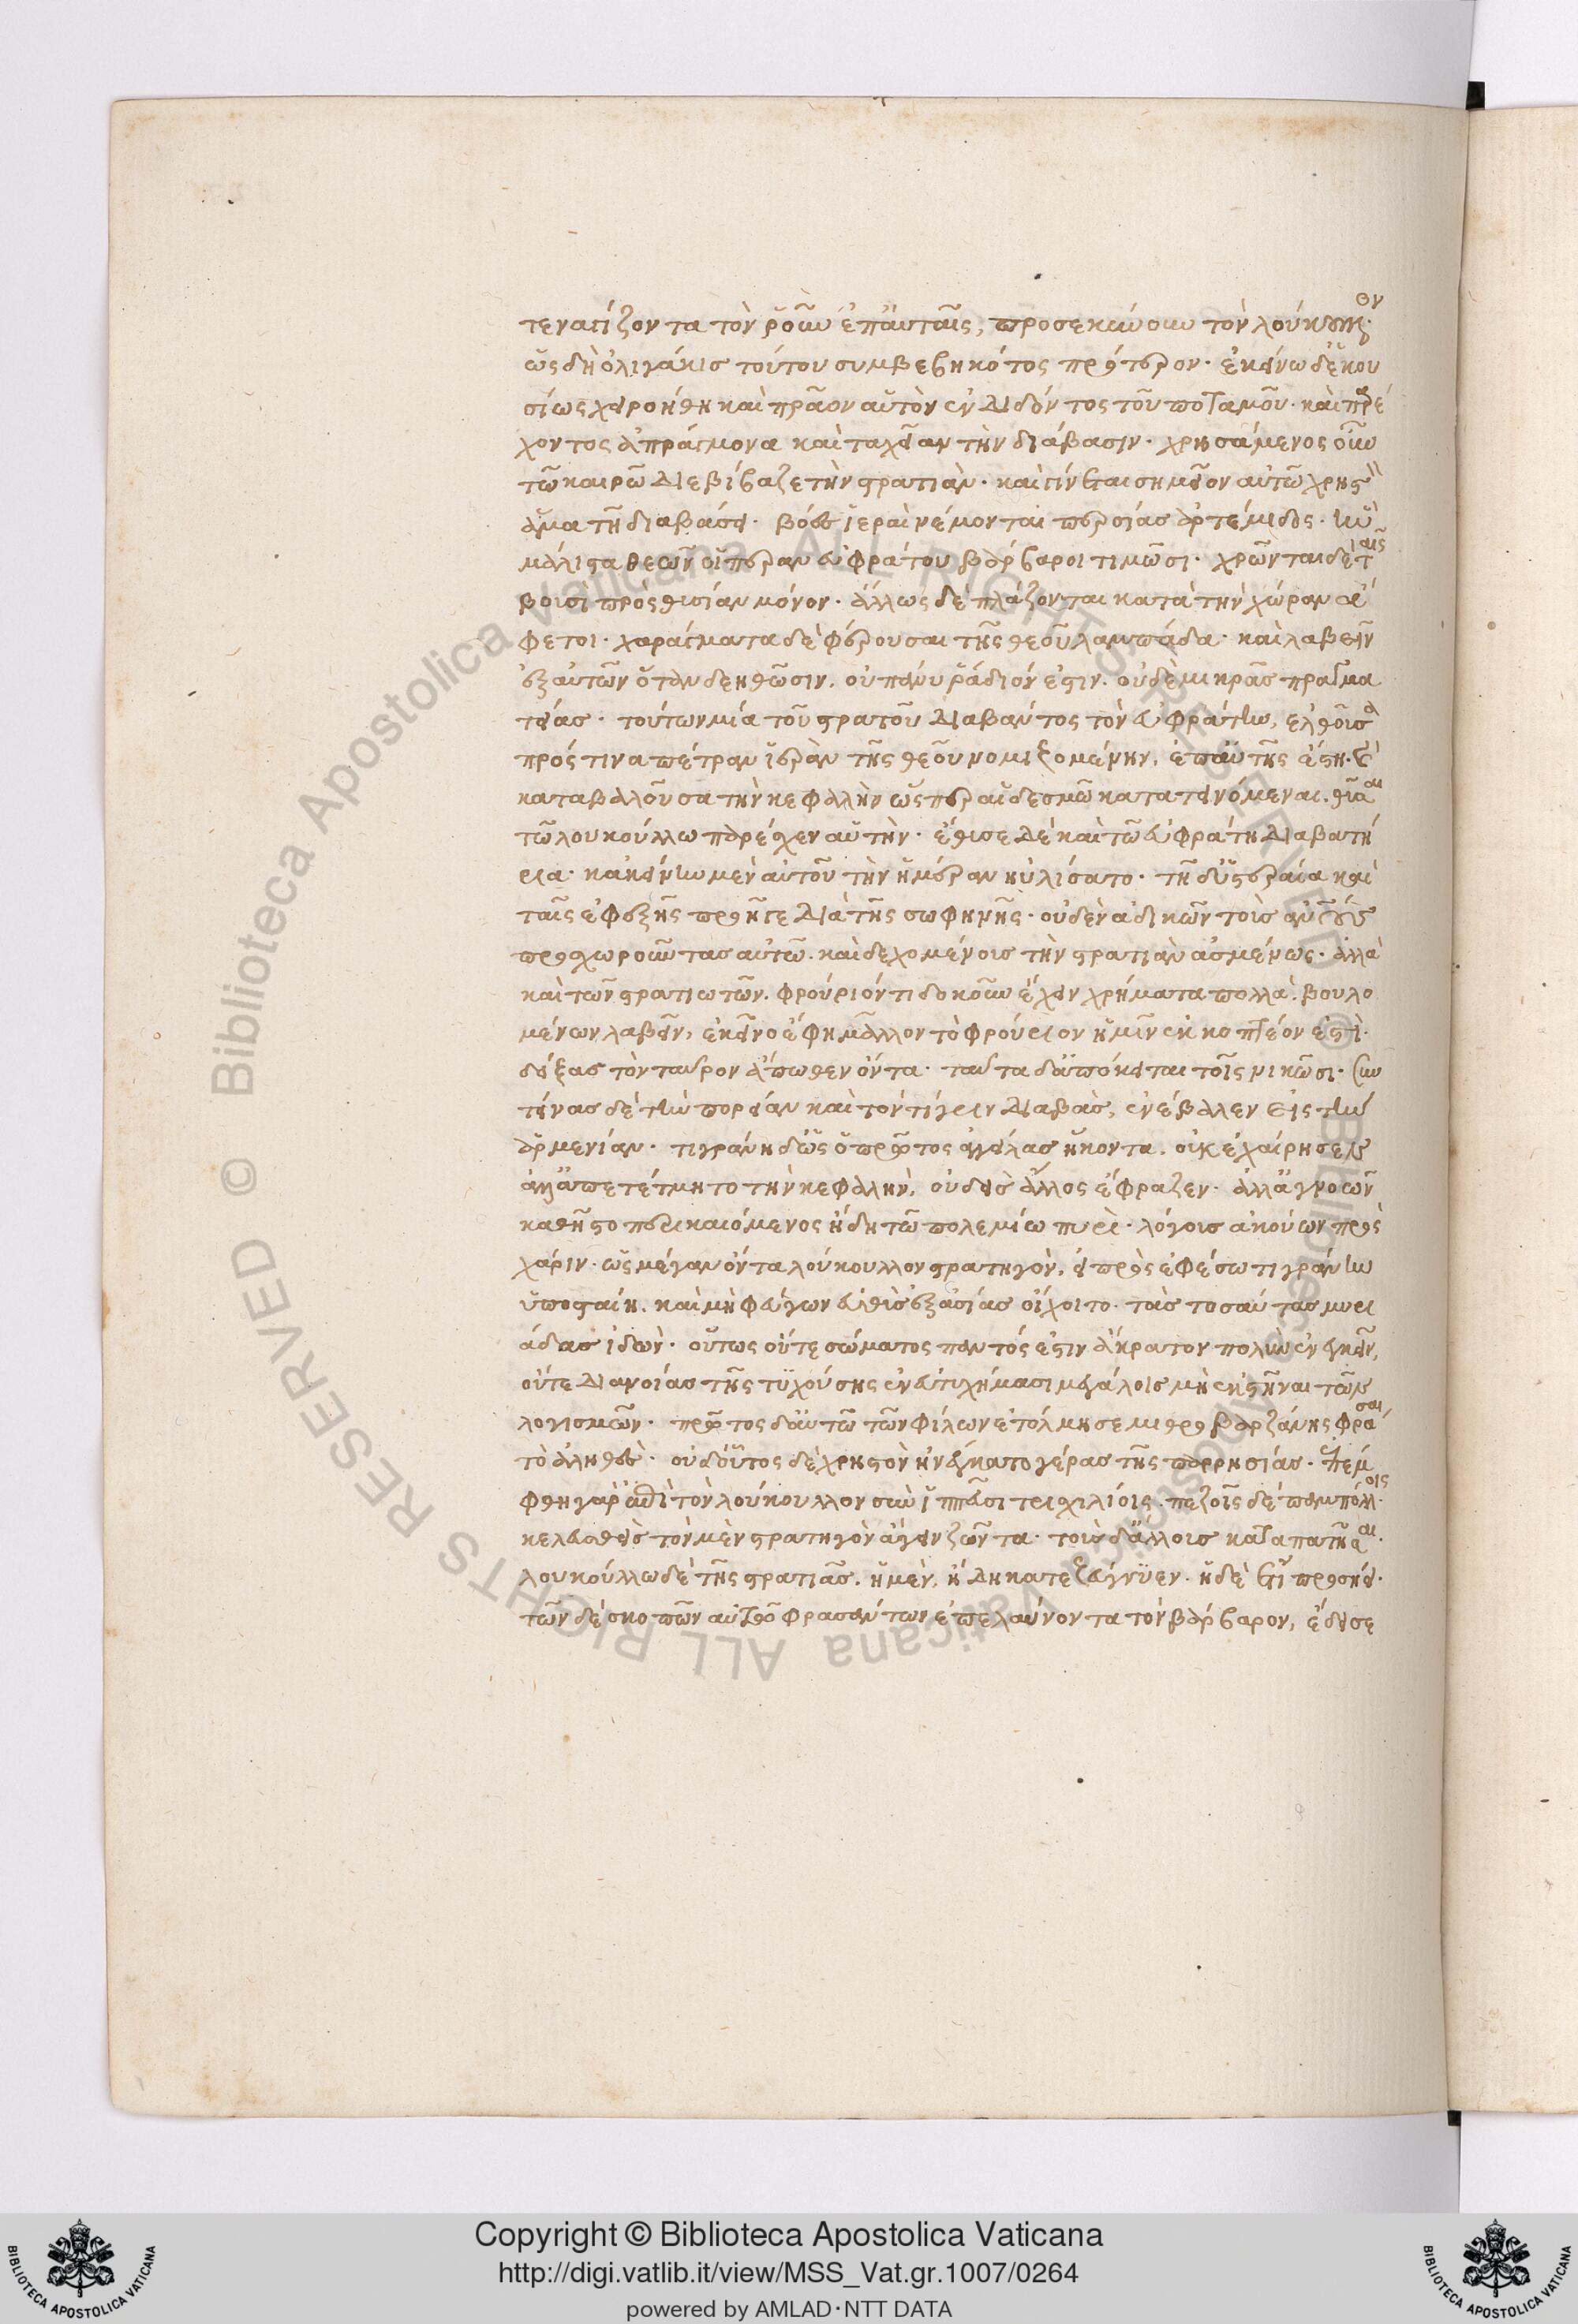 τεναγίζοντα τὸν ῥοῦν ἐπ' αὐταῖς, προσεκύνουν τὸν λούκουλλον·
ὡς δὴ ὀλιγάκις τούτου συμβεβηκότος πρότερον· ἐκείνω δ' ἑκου
σίως χειροήθη καὶ πρᾶον αὑτὸν ἐνδιδόντος τοῦ ποταμοῦ· καὶ παρέ
χοντος ἀπράγμονα καὶ ταχεῖαν τὴν διάβασιν· χρησάμενος οὖν
τῶ καιρῶ διεβίβαζε τὴν στρατιάν· καὶ γίνεται σημεῖον αὐτῶ χρηστὸν
ἅμα τῆ διαβάσει· βόες ἱεραὶ νέμονται περσίας ἀρτέμιδος· ἣν
μάλιστα θεῶν οἱ πέραν εὐφράτου βάρβαροι τιμῶσι· χρῶνται δὲ ταῖς
βουσὶ πρὸς θυσίαν μόνον· ἄλλως δὲ πλάζονται κατὰ τὴν χώραν ἄ
φετοι· χαράγματα δὲ φέρουσαι τῆς θεοῦ λαμπάδα· καὶ λαβεῖν
ἐξ αὐτῶν ὅταν δεηθῶσιν, οὐ πάνυ ῥάδιόν ἐστιν. οὐδὲ μικρᾶς πραγμα
τείας· τούτων μία τοῦ στρατοῦ διαβάντος τὸν εὐφράτην, ἐλθοῦσα
πρός τινα πέτραν ἱερὰν τῆς θεοῦ νομιζομένην, ἐπ' αὐτῆς ἔστη· καὶ
καταβαλοῦσα τὴν κεφαλὴν ὥσπερ αἱ δεσμῶ κατατεινόμεναι. θῦσαι
τῶ λουκούλλω παρέσχεν αὑτήν· ἔθυσε δὲ καὶ τῶ εὐφράτη διαβατή
ρια· κἀκείνην μὲν αὐτοῦ τὴν ἡμέραν ηὐλίσατο· τῆ δ' ὑστεραία καὶ
ταῖς ἐφεξῆς προῆγε διὰ τῆς σωφηνῆς· οὐδὲν ἀδικῶν τοὺς ἀνθρώπους
προσχωροῦντας αὐτῶ. καὶ δεχομένους τὴν στρατιὰν ἀσμένως· ἀλλὰ
καὶ τῶν στρατιωτῶν. φρούριόν τι δοκοῦν ἔχειν χρήματα πολλὰ. βουλο
μένων λαβεῖν, ἐκεῖνο ἔφη μᾶλλον τὸ φρούριον ἡμῖν ἐκκοπτέον ἐστὶ·
δείξας τὸν ταῦρον ἄπωθεν ὄντα· ταῦτα δ' ἀπόκειται τοῖς νικῶσι· συν
τείνας δὲ τὴν πορείαν καὶ τὸν τίγριν διαβὰς, ἐνέβαλεν εἰς τὴν
ἀρμενίαν· τιγράνη δ' ὡς ὁ πρῶτος ἀγγείλας ἥκοντα. οὐκ ἐχαίρησεν
ἀλλ' ἀπετέτμητο τὴν κεφαλὴν, οὐδεὶς ἄλλος ἔφραζεν· ἀλλ' ἀγνοῶν
καθῆστο περικαιόμενος ἤδη τῶ πολεμίω πυρὶ· λόγους ἀκούων πρὸς
χάριν· ὡς μέγαν ὄντα λούκουλλον στρατηγὸν, εἰ πρὸς ἐφέσω τιγράνην
ὑποσταίη. καὶ μὴ φεύγων εὐθὺς ἐξ ἀσίας οἴχοιτο· τὰς τοσαύτας μυρι
άδας ἰδών· οὕτως οὔτε σώματος παντός ἐστιν ἄκρατον πολὺν ἐνεγκεῖν,
οὔτε διανοίας τῆς τυχούσης ἐν εὐτυχήμασι μεγάλοις μὴ ἐκστῆναι τῶν
λογισμῶν· πρῶτος δ' αὐτῶ τῶν φίλων ἐτόλμησε μιθροβαρζάνης φράσαι
τὸ ἀληθὲς· οὐδ' οὗτος δὲ χρηστὸν ἠνέγκατο γέρας τῆς παρρησίας· ἐπέμ
φθη γὰρ εὐθὺς ἐπὶ τὸν λούκουλλον σὺν ἱππεῦσι τρισχιλίοις. πεζοῖς δὲ παμπόλλοις·
κελευσθεὶς τὸν μὲν στρατηγὸν ἄγειν ζῶντα· τοὺς δ' ἄλλους καταπατῆσαι.
λουκούλλω δὲ τῆς στρατιᾶς. ἡ μὲν, ἤδη κατεζεύγνυεν. ἡ δὲ ἔτι προσήει·
τῶν δὲ σκοπῶν αὐτῶ φρασάντων ἐπελαύνοντα τὸν βάρβαρον, ἔδεισε
Copyright © Biblioteca Apostolica Vaticana
http://digi.vatlib.it/view/MSS_Vat.gr.1007/0264
powered by AMLAD·NTT DATA
© Biblioteca Apostolica Vaticana ALL RIGHTS RESERVED
BIBLIOTECA APOSTOLICA VATICANA
BIBLIOTECA APOSTOLICA VATICANA